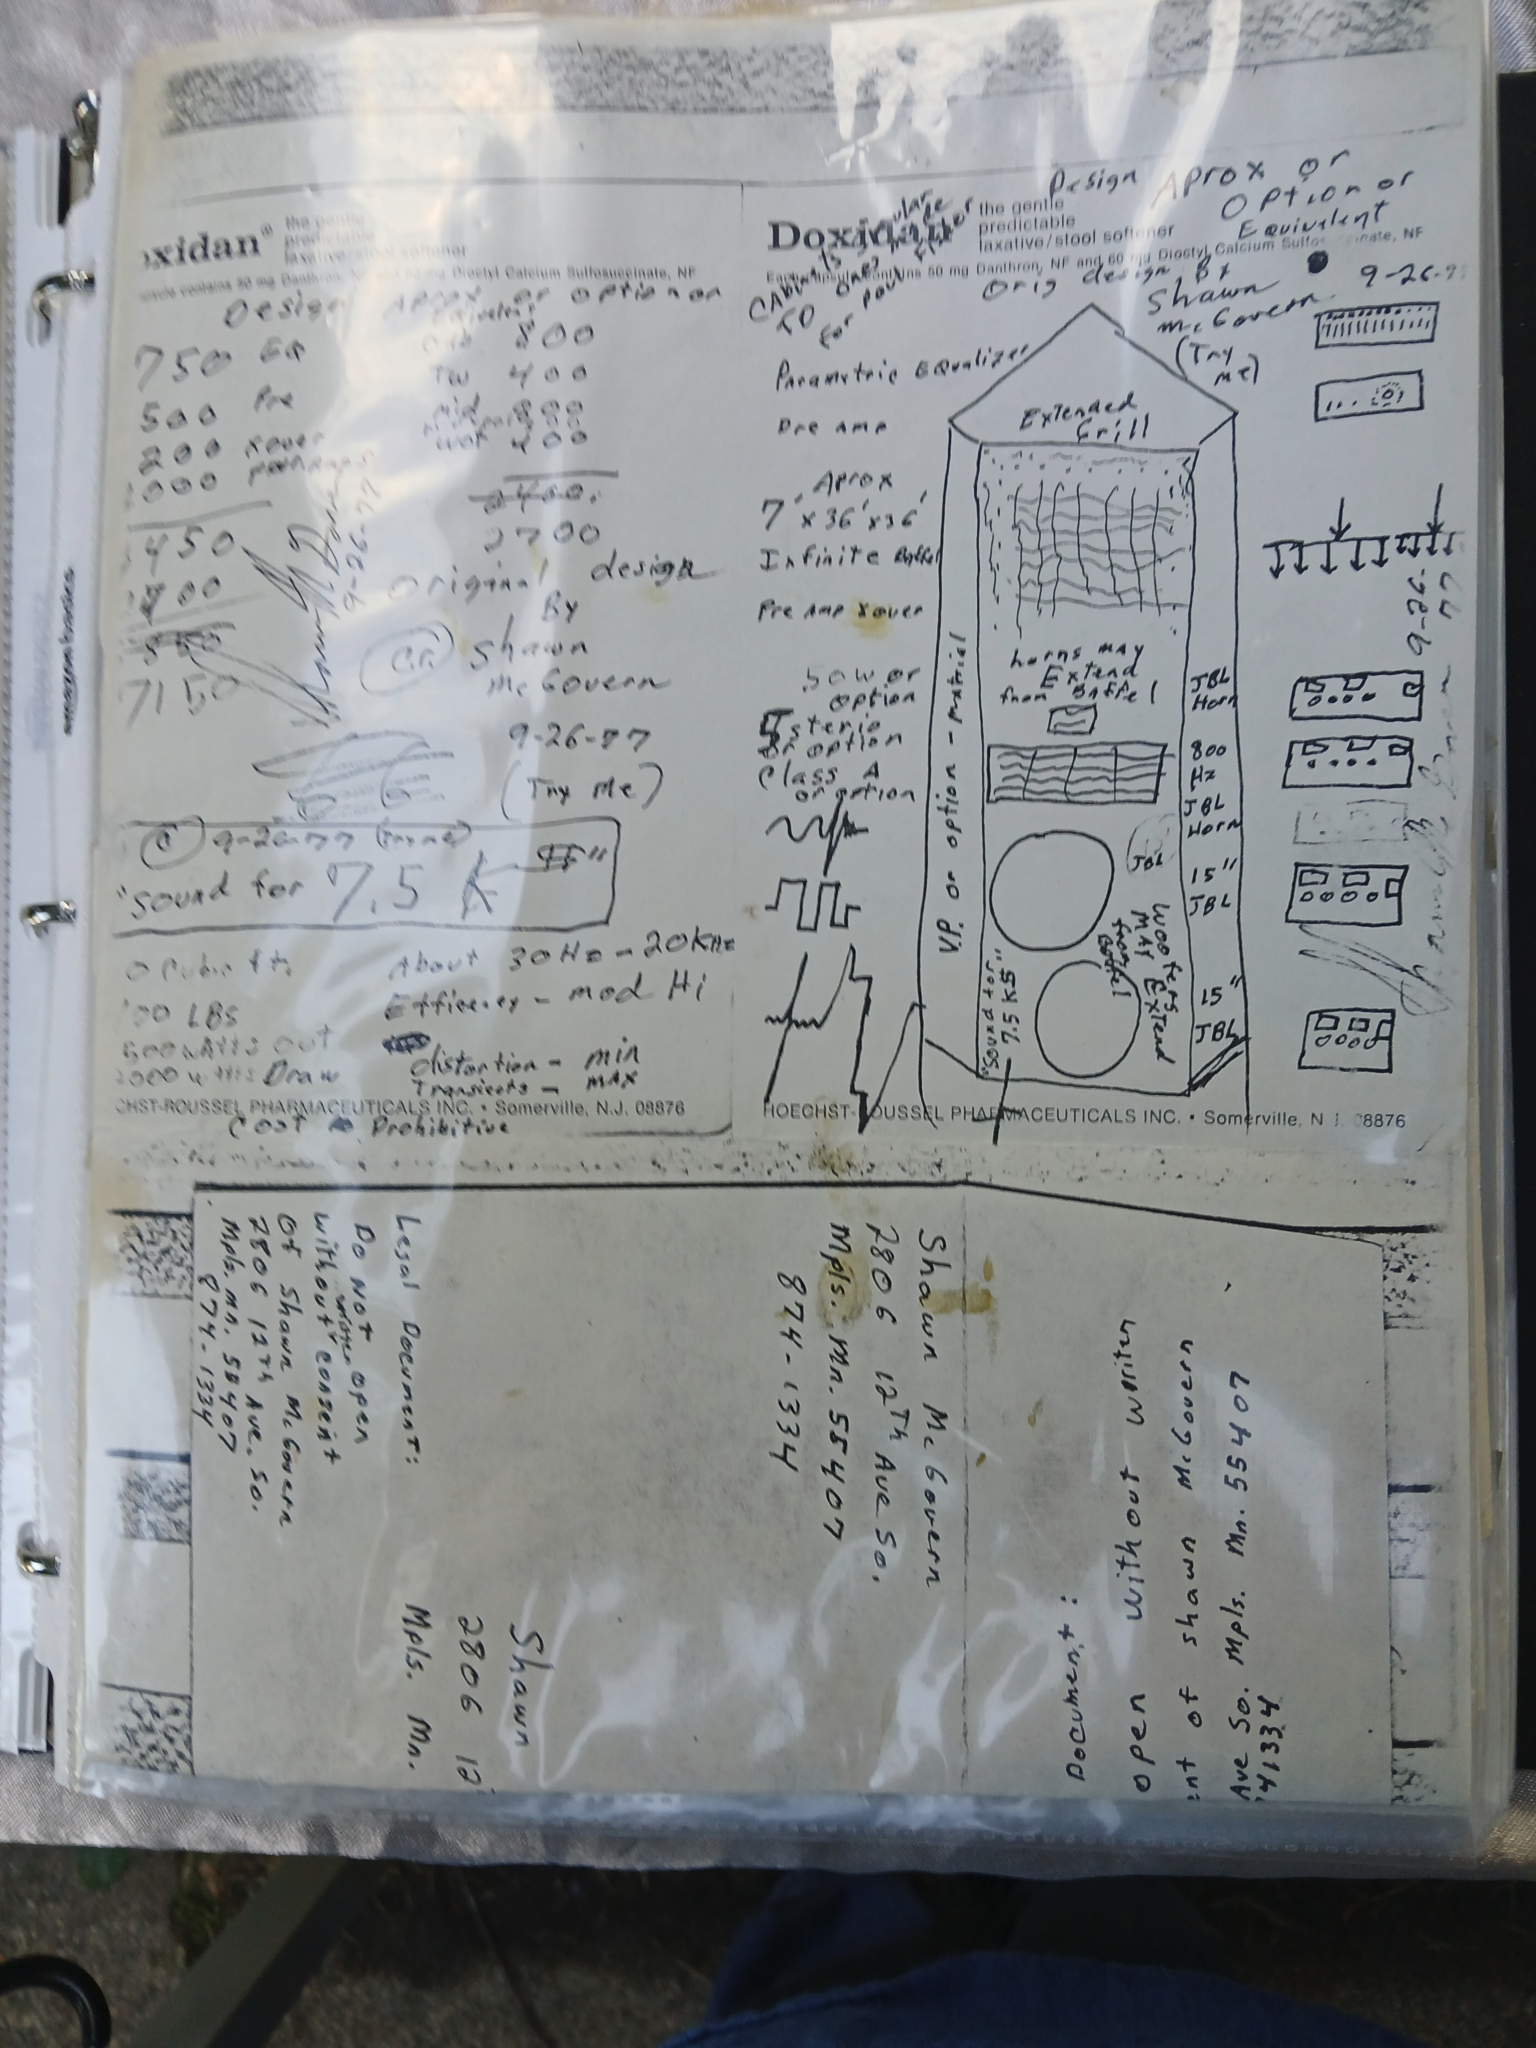 oxidan®
the gentle
predictable
laxative/stool softener
contains 50 mg Danthron, NF and 60 mg Dioctyl Calcium Sulfosuccinate, NF
Design Aprox or option or
Equivelent
750 EQ
800
500 Pre
TW 400
200 xover
Mid 800
000
400
450
2400.
2700
900
7150
9-26-77
Original design
By
Shawn
McGovern
9-26-77
(Try Me)
© 9-26-77 (Try me)
"Sound for 7.5 K $"
0 Cubic ft.
About 30Hz - 20KHz
00 LBS
Efficency - mod Hi
500 watts out
distortion - min
2000 watts Draw
Transients - MAX
CHST-ROUSSEL PHARMACEUTICALS INC. • Somerville, N.J. 08876
Cost Prohibitive
Design Aprox or
Option or
Equivalent
Doxidan
the gentle
predictable
laxative/stool softener
Each capsule contains 50 mg Danthron, NF and 60 mg Dioctyl Calcium Sulfosuccinate, NF
orig design By
Shawn
McGovern
(Try
me)
9-26-77
Parametric Equalizer
Pre Amp
Extended
Grill
Aprox
7' x 36' x 36'
Infinite Baffel
Pre Amp xover
50 W or
option
Sterio
or option
Class A
or option
Vip or option - matrial
horns MAY
Extend
from Baffel
JBL
Horn
800
Hz
JBL
Horn
JBL
15"
JBL
Woofers
MAY Extend
from
Baffel
15"
JBL
"Sound for
7.5 K$"
9-26-77
HOECHST-ROUSSEL PHARMACEUTICALS INC. • Somerville, N.J. 08876
Legal Document:
Do Not open
without written consent
of Shawn McGovern
2806 12th Ave. So.
Mpls. Mn. 55407
874-1334
Shawn McGovern
2806 12Th Ave So.
Mpls. Mn. 55407
874-1334
Shawn
2806 12
Mpls. Mn.
Document:
open without writen
ent of Shawn McGovern
Ave So. Mpls. Mn. 55407
41334